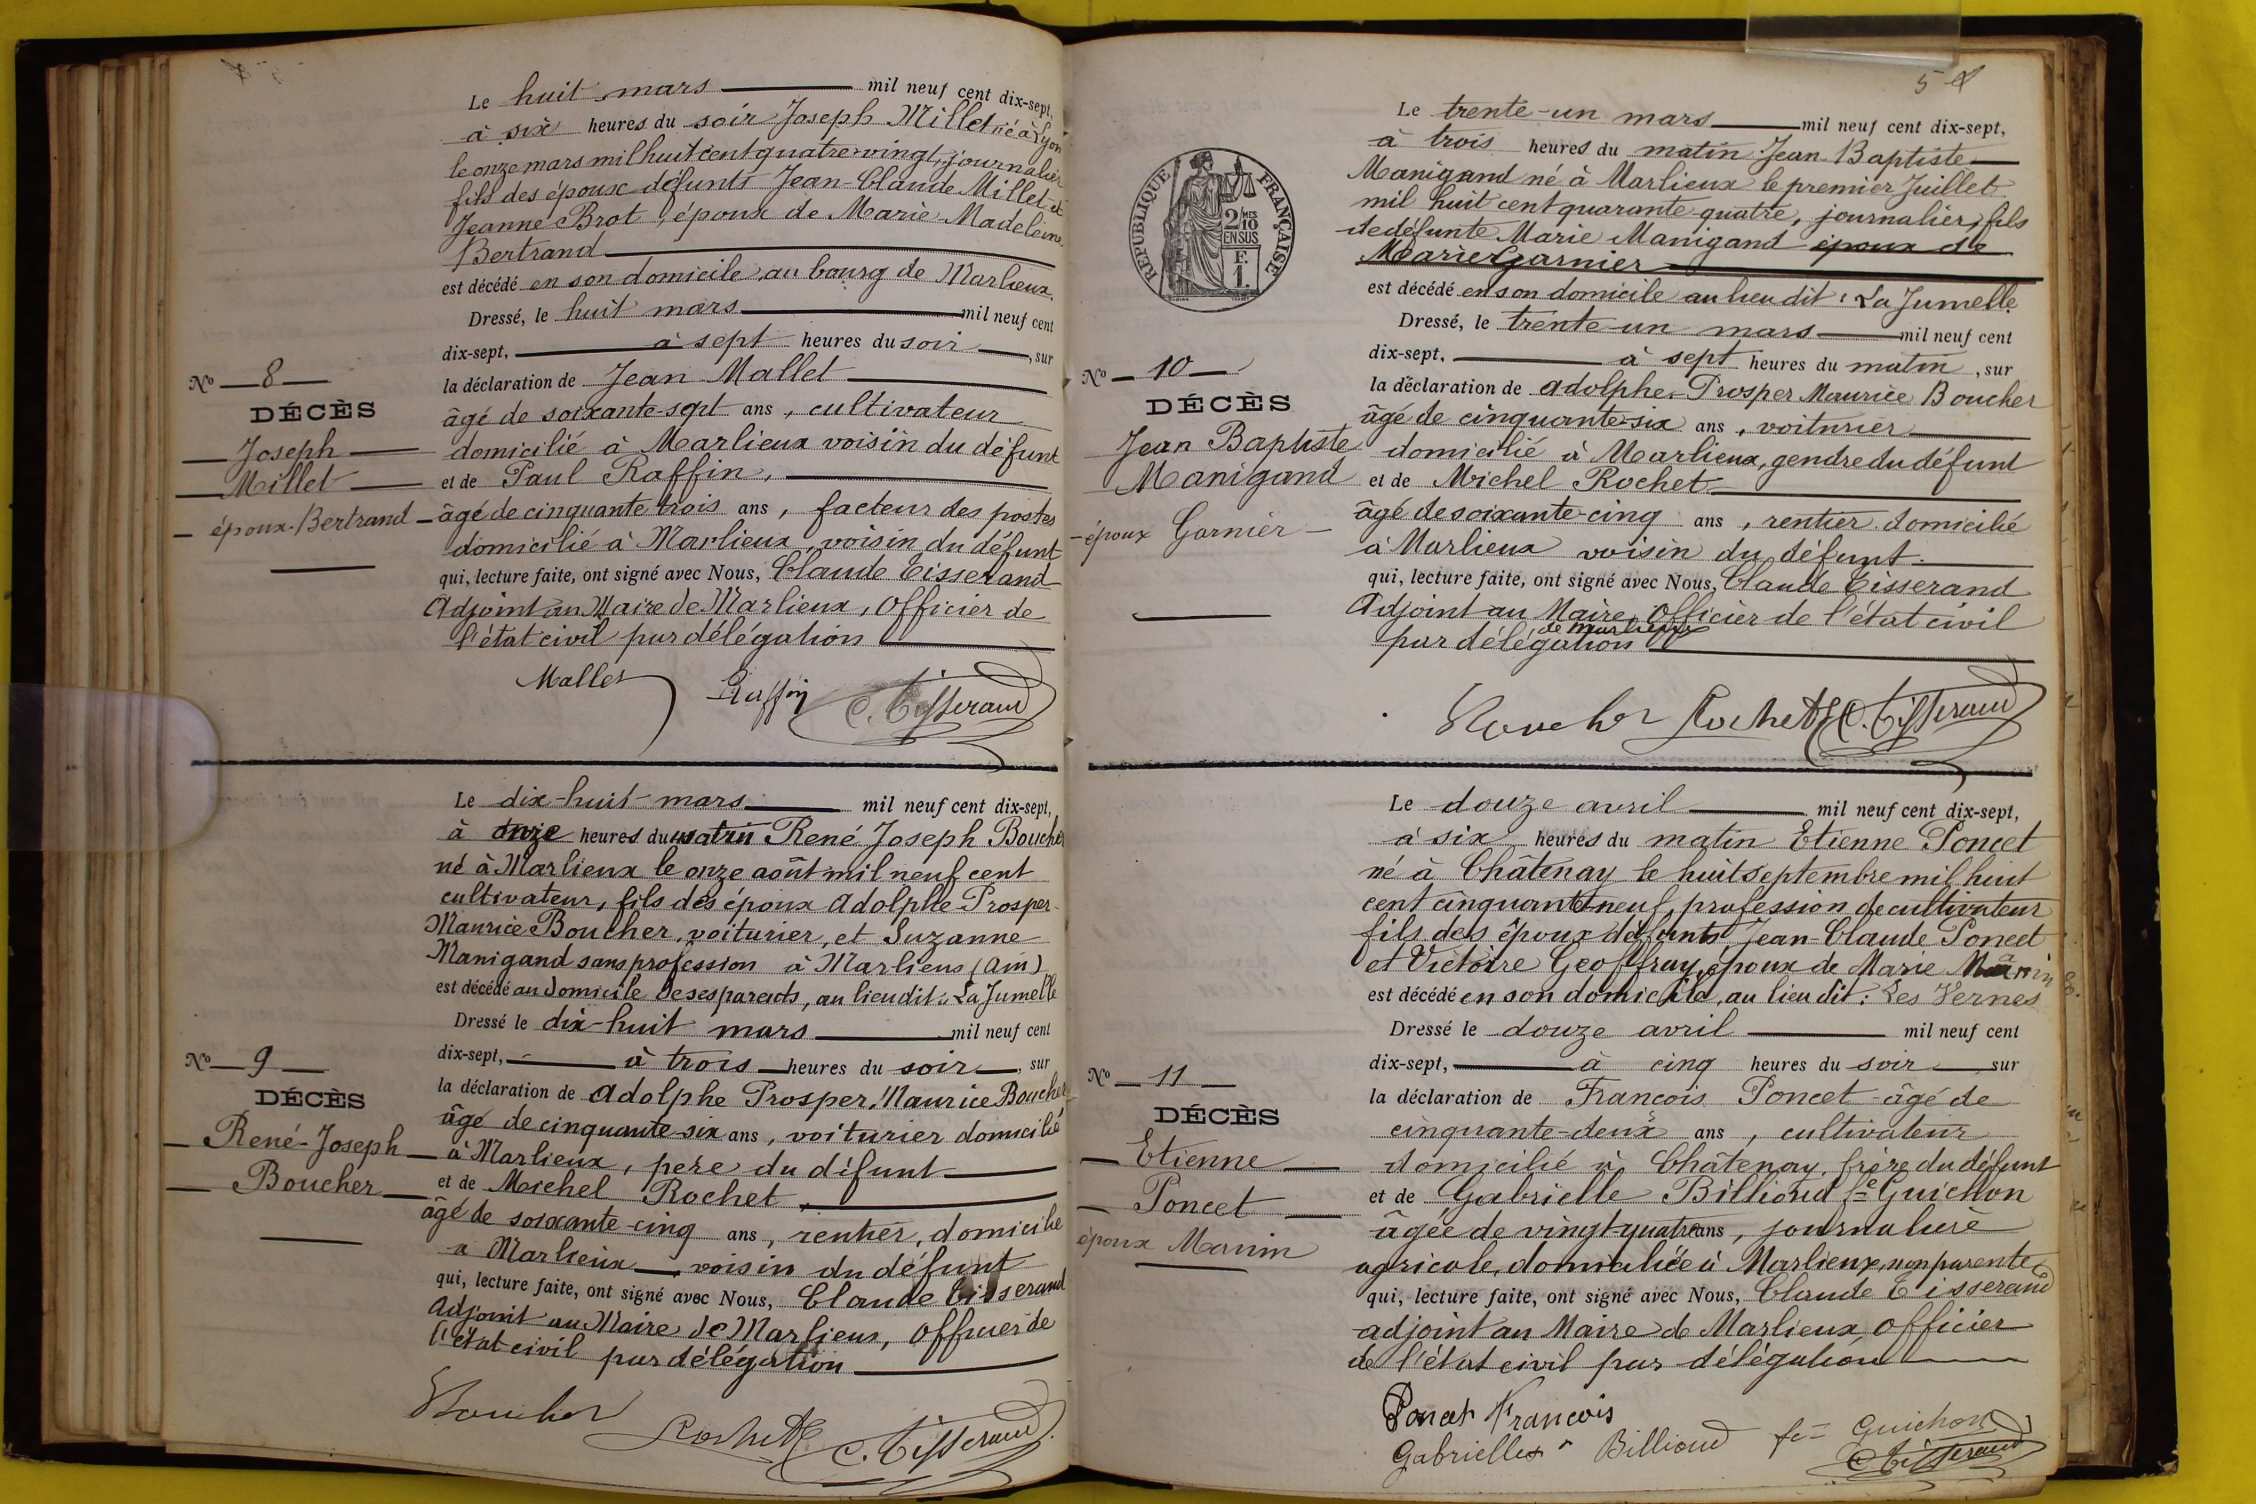 Le huit mars mil neuf cent dix-sept,
à six heures du soir Joseph Millet né à Lyon
le onze mars mil huit cent quatre-vingt, journalier
fils des époux défunts Jean-Claude Millet et
Jeanne Brot, époux de Marie Madeleine
Bertrand
est décédé en son domicile, au bourg de Marlieux.
Dressé, le huit mars mil neuf cent
dix-sept, à sept heures du soir, sur
la déclaration de Jean Mallet
âgé de soixante-sept ans, cultivateur
domicilié à Marlieux voisin du défunt
et de Paul Raffin,
âgé de cinquante trois ans, facteur des postes
domicilié à Marlieux, voisin du défunt
qui, lecture faite, ont signé avec Nous, Claude Tisserand
Adjoint au Maire de Marlieux, Officier de
l'état civil par délégation
Mallet Raffin C. Tisserand
No 8
DÉCÈS
Joseph
Millet
époux Bertrand
Le dix-huit mars mil neuf cent dix-sept,
à onze heures du matin René Joseph Boucher
né à Marlieux le onze août mil neuf cent
cultivateur, fils des époux Adolphe Prosper
Maurice Boucher, voiturier, et Suzanne
Manigand sans profession à Marlieux (Ain)
est décédé au domicile de ses parents, au lieu dit: La Jumelle
Dressé le dix-huit mars mil neuf cent
dix-sept, à trois heures du soir, sur
la déclaration de Adolphe Prosper Maurice Boucher
âgé de cinquante-six ans, voiturier domicilié
à Marlieux, père du défunt
et de Michel Rochet,
âgé de soixante-cinq ans, rentier, domicilié
à Marlieux voisin du défunt
qui, lecture faite, ont signé avec Nous, Claude Tisserand
Adjoint au Maire de Marlieux, Officier de
l'état-civil par délégation
Boucher Rochet C. Tisserand
No 9
DÉCÈS
René-Joseph
Boucher
5
Le trente-un mars mil neuf cent dix-sept,
à trois heures du matin Jean-Baptiste
Manigand né à Marlieux le premier Juillet
mil huit cent quarante-quatre, journalier, fils
de défunte Marie Manigand époux de
Marie Garnier
est décédé en son domicile au lieu dit: La Jumelle.
Dressé, le trente-un mars mil neuf cent
dix-sept, à sept heures du matin, sur
la déclaration de Adolphe-Prosper Maurice Boucher
âgé de cinquante-six ans, voiturier
domicilié à Marlieux, gendre du défunt
et de Michel Rochet
âgé de soixante-cinq ans, rentier domicilié
à Marlieux voisin du défunt.
qui, lecture faite, ont signé avec Nous, Claude Tisserand
Adjoint au Maire, Officier de l'état civil
de Marlieux
par délégation
Boucher Rochet C. Tisserand
RÉPUBLIQUE FRANÇAISE
2/10 MES
EN SUS
F.
1.
No 10
DÉCÈS
Jean Baptiste
Manigand
époux Garnier
Le douze avril mil neuf cent dix-sept,
à six heures du matin Etienne Poncet
né à Châtenay le huit septembre mil huit
cent cinquante-neuf, profession de cultivateur
fils des époux défunts Jean-Claude Poncet
et Victoire Geoffray, époux de Marie Manin
est décédé en son domicile, au lieu dit: Les Vernes
Dressé le douze avril mil neuf cent
dix-sept, à cinq heures du soir sur
la déclaration de François Poncet âgé de
cinquante-deux ans, cultivateur
domicilié à Châtenay, frère du défunt
et de Gabrielle Billioud fe Guichon
âgée de vingt-quatre ans, journalière
agricole, domiciliée à Marlieux, non parente
qui, lecture faite, ont signé avec Nous, Claude Tisserand
adjoint au Maire de Marlieux, Officier
de l'état civil par délégation
Poncet François
Gabrielle Billioud fe Guichon
C. Tisserand
No 11
DÉCÈS
Etienne
Poncet
époux Manin